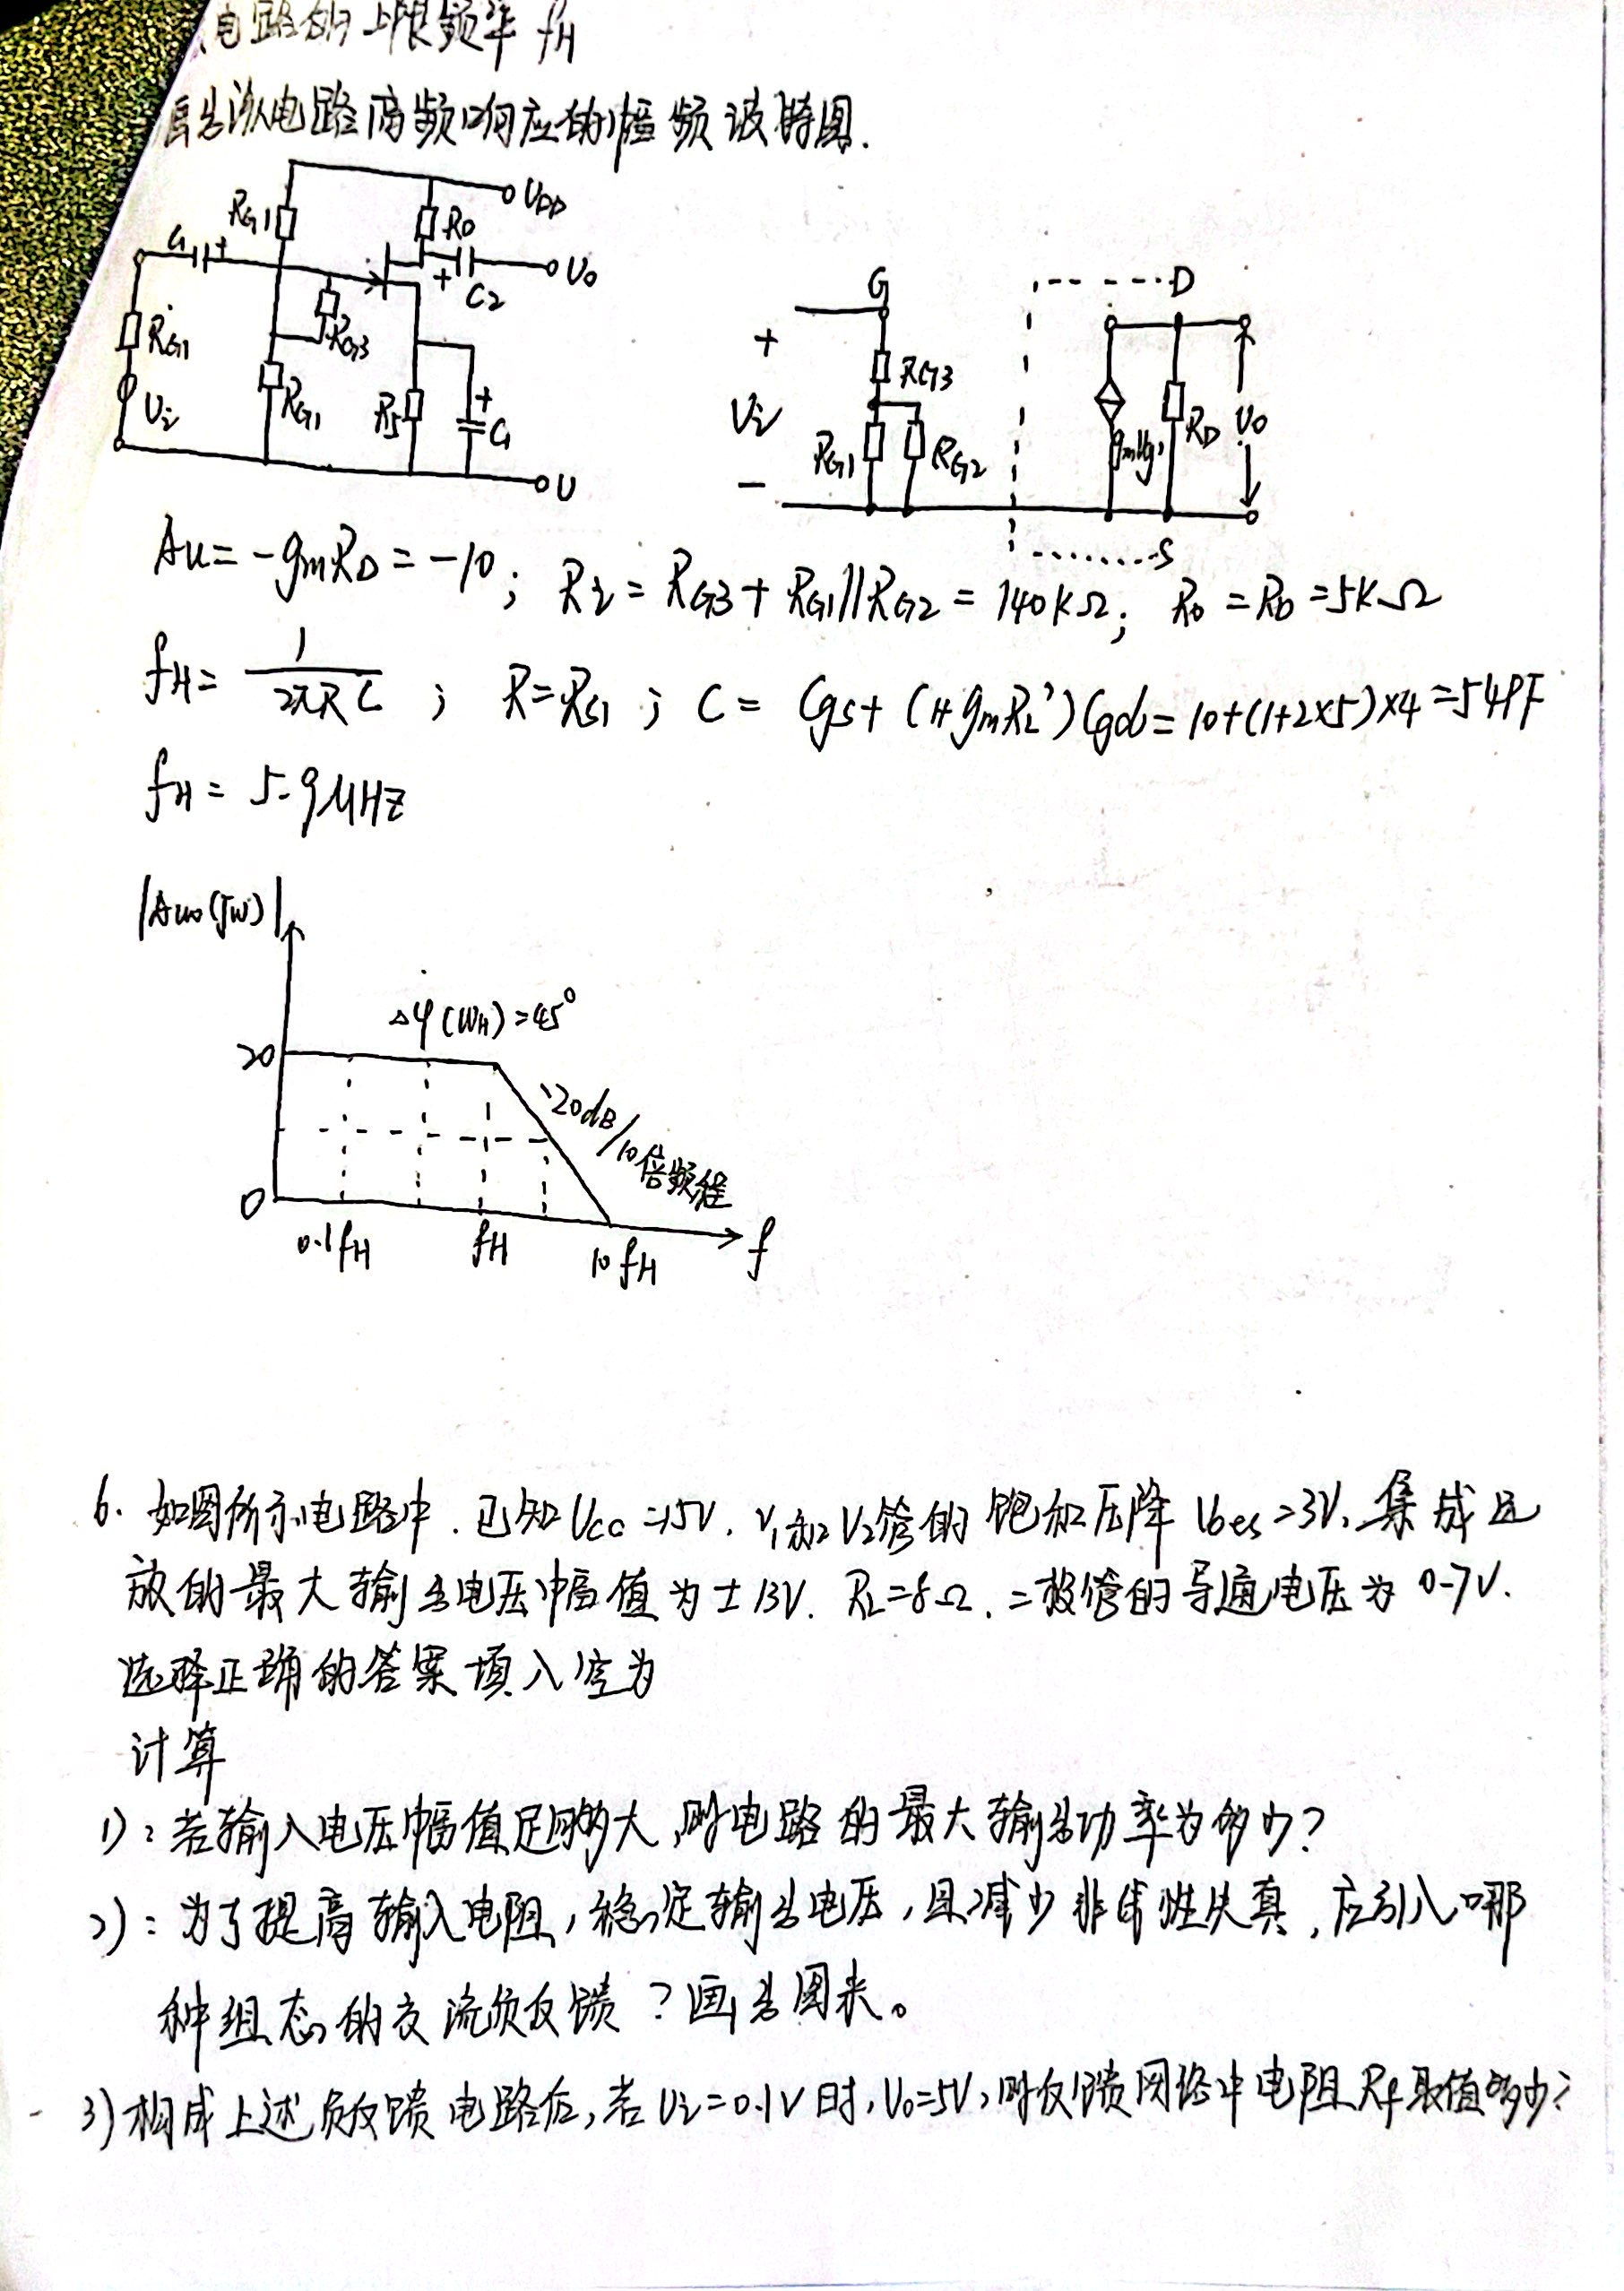 电路的上限频率 fH
画出该电路高频响应的幅频波特图.
RG1
RD
UDD
C1
+
+
C2
U0
RG1
RG3
Ui
RG1
RS
+
C1
U
G
D
+
Vi
-
RG3
RG1
RG2
gmVgs
RD
U0
S
Au=-gmRD=-10; Ri=RG3+RG1//RG2=140KΩ; R0=RD=5KΩ
fH=1/2πRC ; R=RS1 ; C=Cgs+(1+gmRL')Cgd=10+(1+2×5)×4=54PF
fH=5.9MHz
|Auo(jw)|
Δφ(WH)=45°
20
-20dB/10倍频程
0
0.1fH
fH
10fH
f
6. 如图所示电路中.已知Ucc=15V.V1和V2管的饱和压降Uces=3V,集成运
放的最大输出电压幅值为±13V. RL=8Ω.二极管的导通电压为0.7V.
选择正确的答案填入空为
计算
1):若输入电压幅值足够大,则电路的最大输出功率为多少?
2):为了提高输入电阻,稳定输出电压,且减少非线性失真,应引入哪
种组态的交流负反馈?画出图来。
3)构成上述负反馈电路后,若Ui=0.1V时,U0=5V,则反馈网络中电阻Rf取值多少?